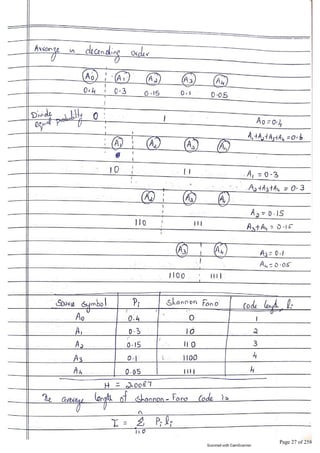 Arrange in decending order
A0 A1 A2 A3 A4
0.4 0.3 0.15 0.1 0.05
Divide equal probability 0 1 A0 = 0.4
A1+A2+A3+A4 = 0.6
A1 A2 A3 A4
10 11 A1 = 0.3
A2+A3+A4 = 0.3
A2 A3 A4
110 111 A2 = 0.15
A3+A4 = 0.15
A3 A4 A3 = 0.1
A4 = 0.05
1100 1111
Symbol Pi Shannon Fano Code length li
A0 0.4 0 1
A1 0.3 10 2
A2 0.15 110 3
A3 0.1 1100 4
A4 0.05 1111 4
H = 2.0087
The average length of Shannon-Fano Code is
n
L = Σ Pi li
i=0
Scanned with CamScanner
Page 27 of 256